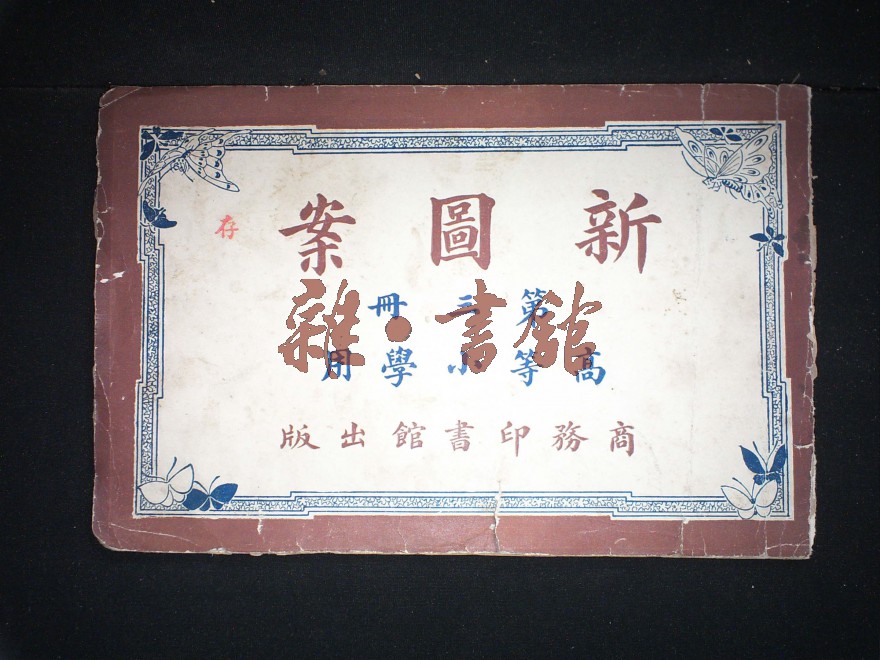 新圖案
存
第 冊
高等小學用
商務印書館出版
雜·書館